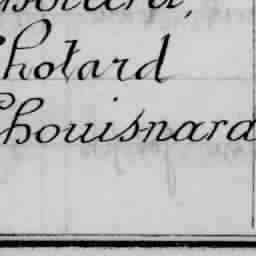 Chotard
Chouisnard